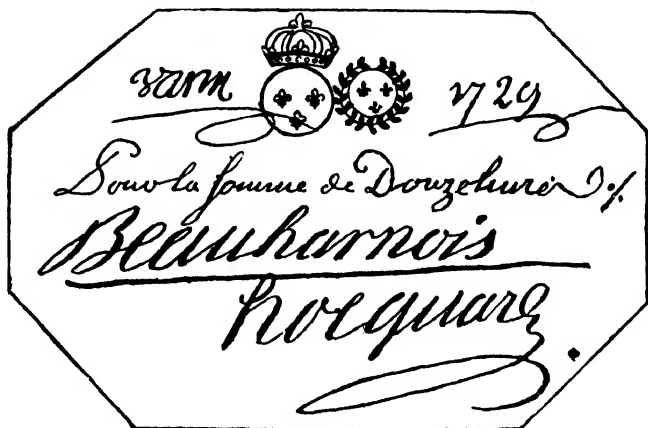 1729
Pour la somme de Douze livres
Beauharnois
hocquart